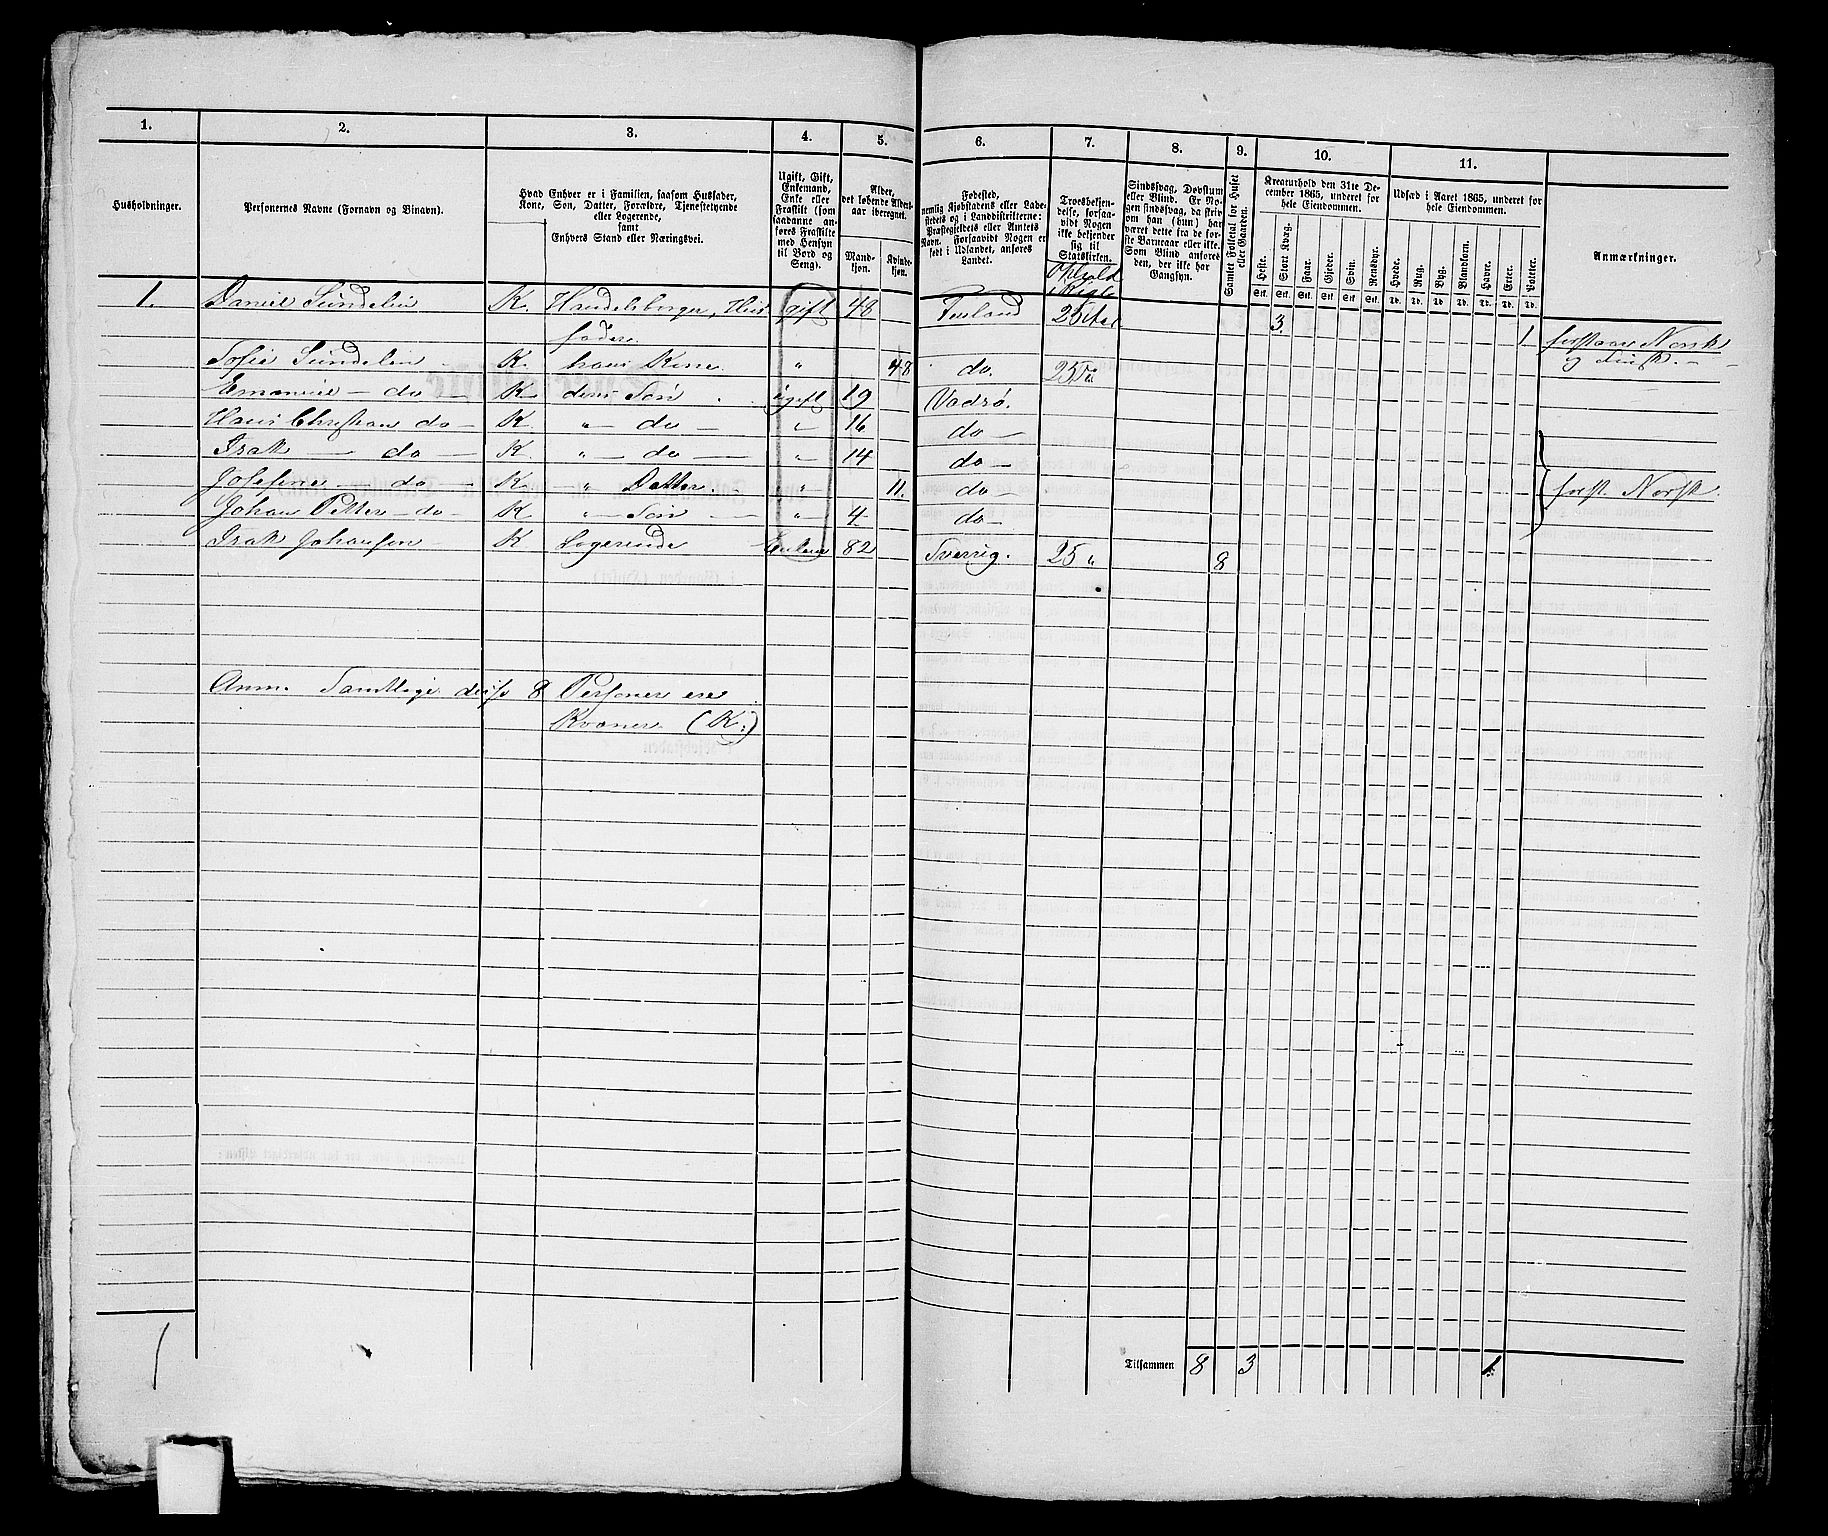 1. 2. 3. 4. 5. 6. 7. 8. 9. 10. 11.
Husholdninger.
Personernes Navne (Fornavn og Binavn).
Hvad Enhver er i Familien, saasom Husfader,
Kone, Søn, Datter, Forældre, Tjenestetyende
eller Logerende,
samt
Enhvers Stand eller Næringsvei.
Ugift, Gift,
Enkemand,
Enke eller
Fraskilt (som
saadanne an-
føres Fraskilte
med Hensyn
til Bord og
Seng).
Alder,
det løbende Alders-
aar iberegnet.
Mand-
kjøn.
Kvinde-
kjøn.
Fødested,
nemlig Kjøbstadens eller Lade-
stedets og i Landdistrikterne:
Præstegjeldets eller Amtets
Navn. Forsaavidt Nogen er
født i Udlandet, anføres
Landet.
Troesbekjen-
delse, forsaa-
vidt Nogen
ikke bekjender
sig til
Statskirken.
Ophold
i Rige
Sindssvag, Døvstum
eller Blind. Er No-
gen sindssvag, da skriv
om han (hun) har
været dette fra de før-
ste Barneaar eller ikke.
Som Blind anføres
den, der ikke har
Gangsyn.
Samlet Folketal for Huset
eller Gaarden.
Kreaturhold den 31te De-
cember 1865, underet for
hele Eiendommen.
Heste. Stort Kvæg. Faar. Gjeder. Svin. Rensdyr.
Stk. Stk. Stk. Stk. Stk. Stk.
Udsæd i Aaret 1865, underet for
hele Eiendommen.
Hvede. Rug. Byg. Blandkorn. Havre. Erter. Poteter.
Td. Td. Td. Td. Td. Td. Td.
Anmærkninger.
1. Daniel Sundelin K. Handelsborger, Hus- gift 48 Finland 25 3. 1 forstaar Norsk
fader.
Sofie Sundelin K. hans Kone. " 48 do. 25 og Finsk
Emanuel - do K. deres Søn ugift 19 Vadsø.
Hans Christian do - K. " - do - " 16 do -
Isak - do - K. " - do - " 14 do -
Josefine - do - K " Datter. " 11. do - forst. Norsk.
Johan Petter - do - K. " - Søn - " 4 do -
Isak Johansen - K Logerende 82 Sverrig. 25 " 8
Anm. Samtlige disse 8 Personer ere
Kvæner (K.)
Tilsammen 8 3 1